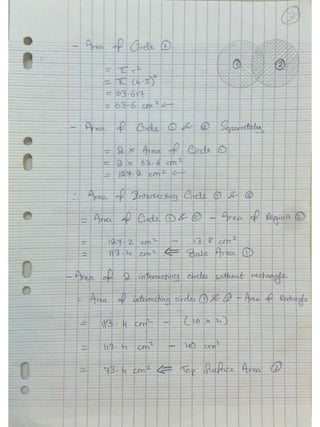 - Area of Circle ①
① ②
= π r²
= π (4.5)²
= 63.617
= 63.6 cm²
- Area of Circle ① & ② Separately
= 2 × Area of Circle ①
= 2 × 63.6 cm²
= 127.2 cm²
∴ Area of Intersecting Circle ① & ②
= Area of Circle ① & ② - Area of Region
= 127.2 cm² - 13.8 cm²
= 113.4 cm² ⇐ Base Area ①
- Area of 2 intersecting circles without rectangle.
= Area of intersecting circles ① & ② - Area of Rectangle
= 113.4 cm² - (10 × 4)
= 113.4 cm² - 40 cm²
= 73.4 cm² ⇐ Top Surface Area ②